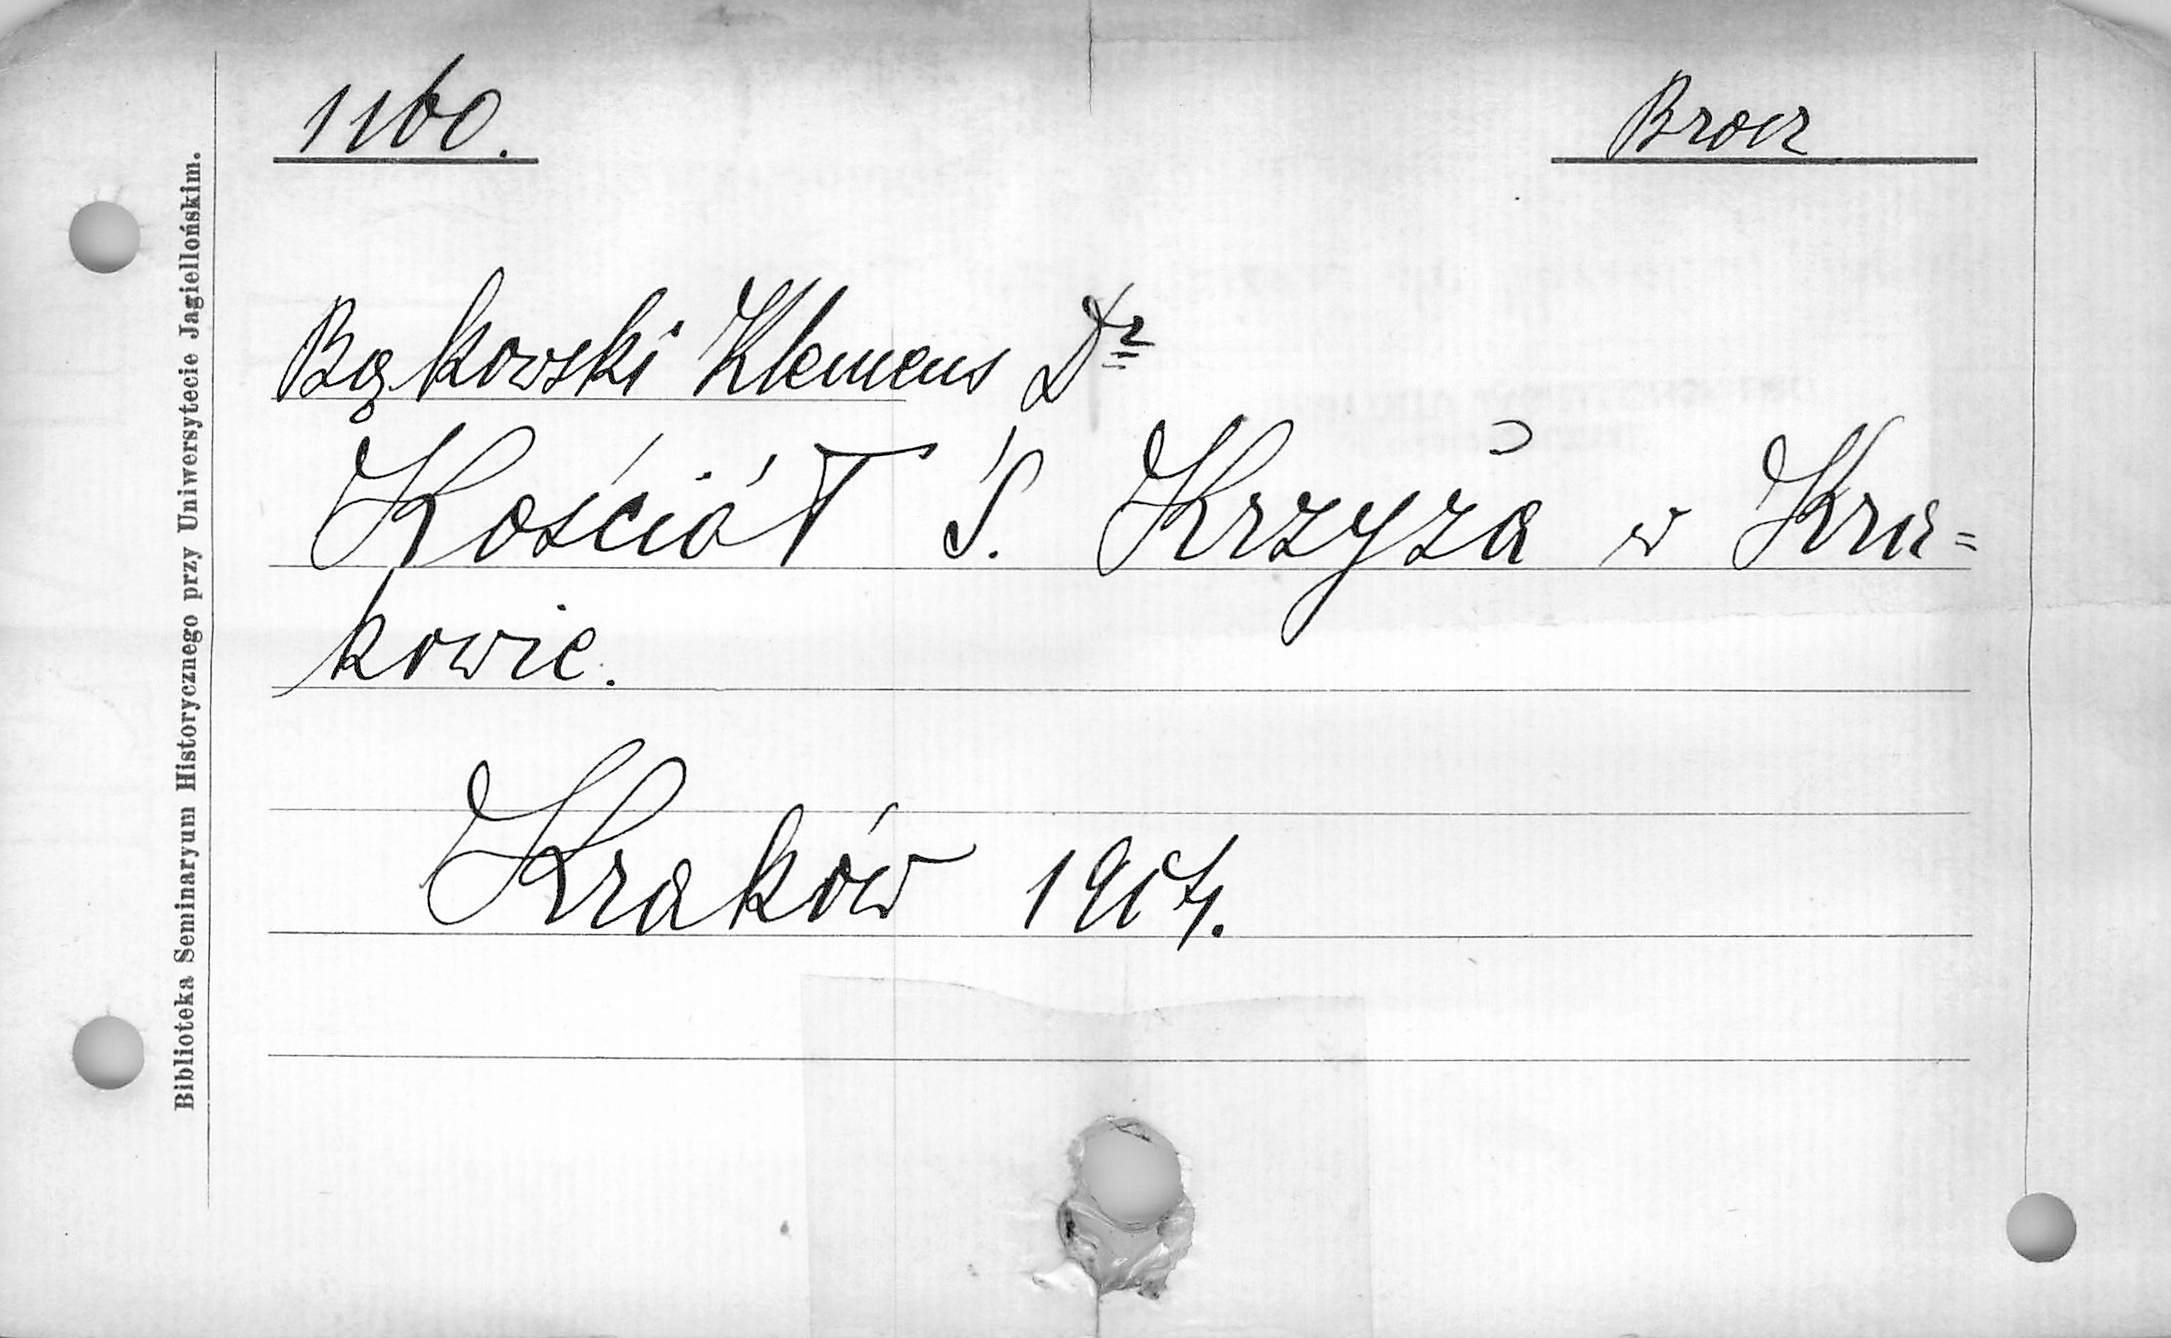 1160.
Brocz
Bąkowski Klemens Dr
Kościół Ś. Krzyża w Kra=
kowie.
Kraków 1904.
Biblioteka Seminaryum Historycznego przy Uniwersytecie Jagiellońskim.